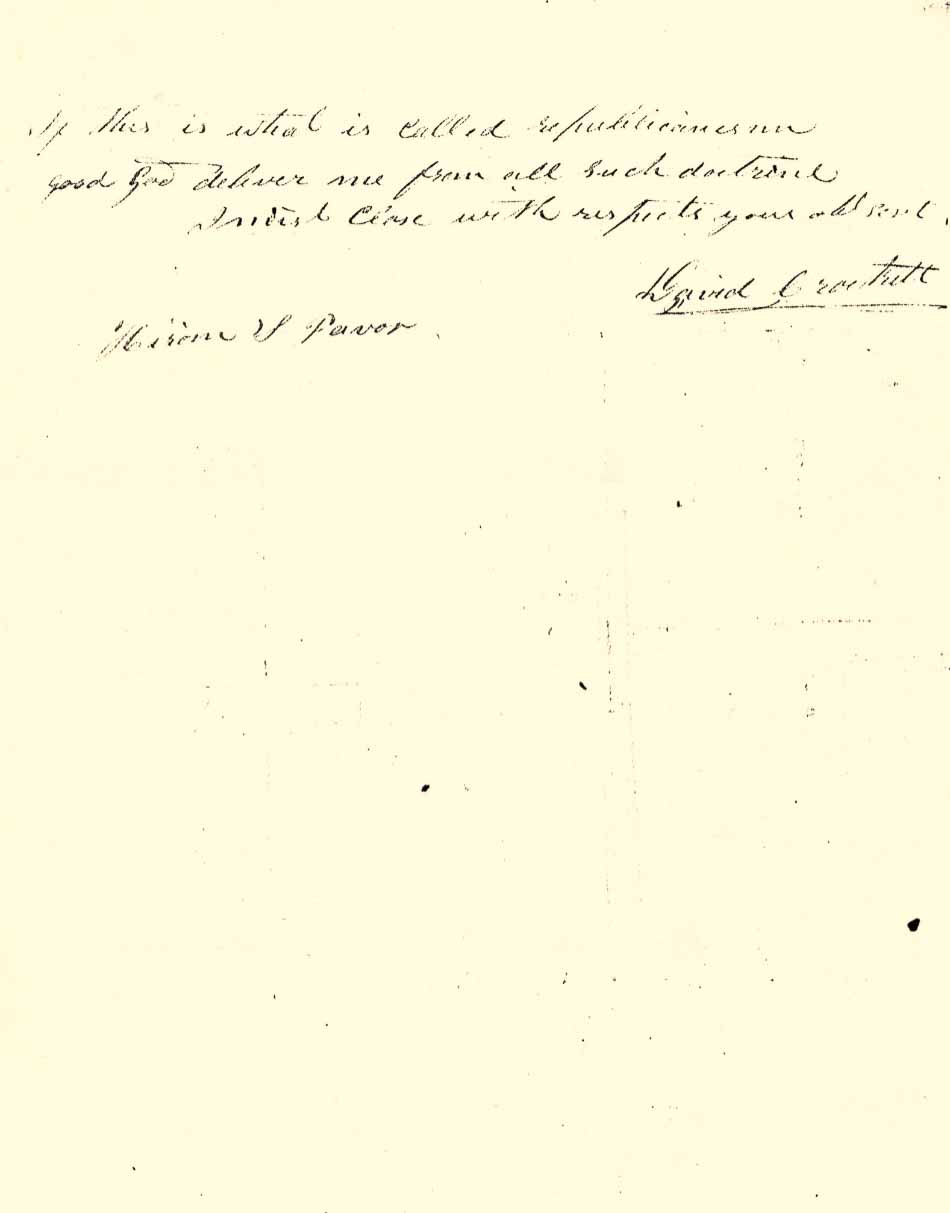 If this is what is called republicanism
good God deliver me from all such doctrine
I must Close with respects your obt servt
David Crockett
Hiram S Favor